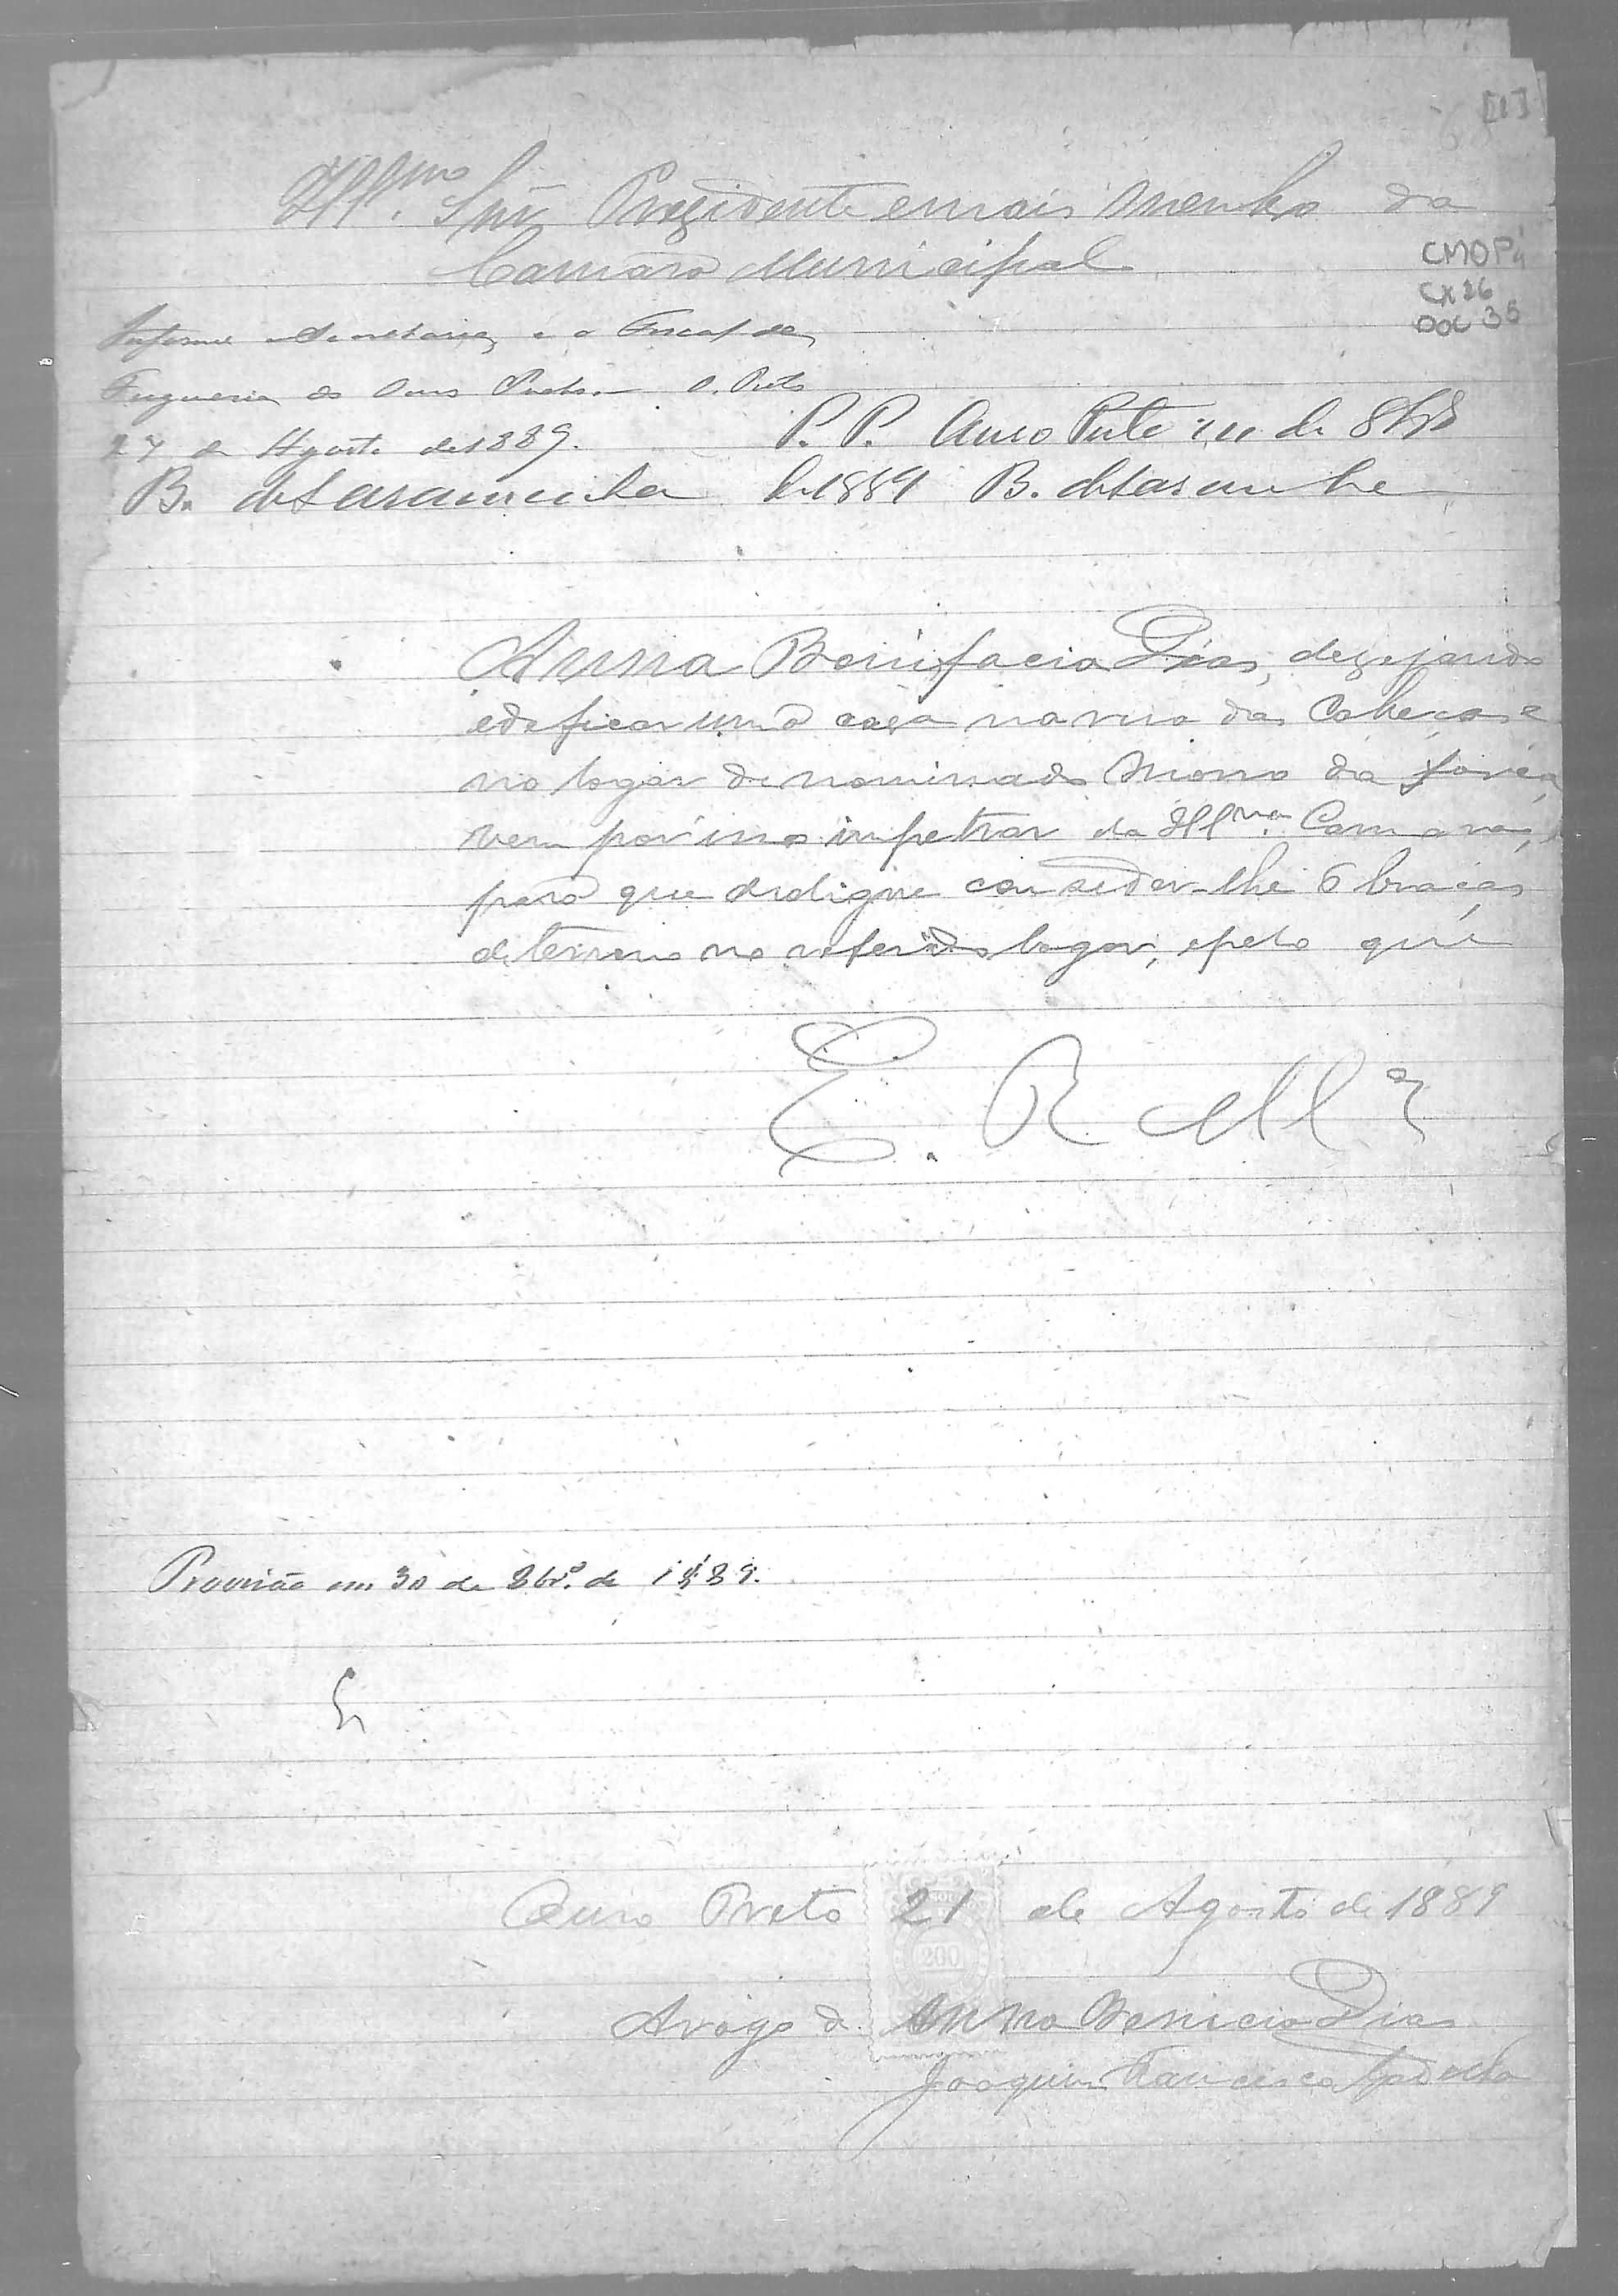 [1]
Illmo. Snr. Prezidente e mais Menbro da
Camara Municipal
CMOP
CX 26
DOC 35
Informe a Secretaria e o Fiscal da
Freguesia do Ouro Preto. O. Preto
27 de Agosto de 1889.
B. de Saramenha
P. P. Ouro Preto de 8bro
de 1889 B. de Saramenha
Anna Bonifacia Dias, dezejando
edeficar uma caza na rua das Cabeças e
no logar denominado Morro da forca
vem por isso impetrar da Illma. Camara,
para que se digne conseder-lhe 6 braças
de terreno no referido logar, e pelo que
E. R. Mce
Provisão em 30 de 8bro. de 1889.
Ouro Preto 21 de Agosto de 1889
200
Arogo de Anna Benicia Dias
Joaquim Francisco